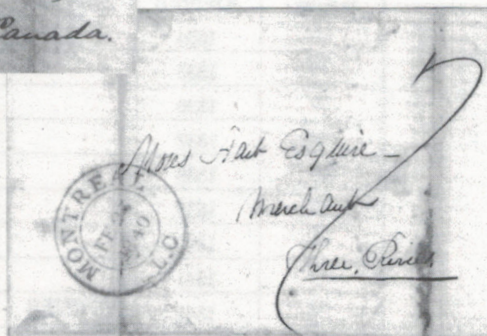 Canada.
Moses Hart Esquire
Merchant
Three Rivers
MONTREAL
FE
L.C